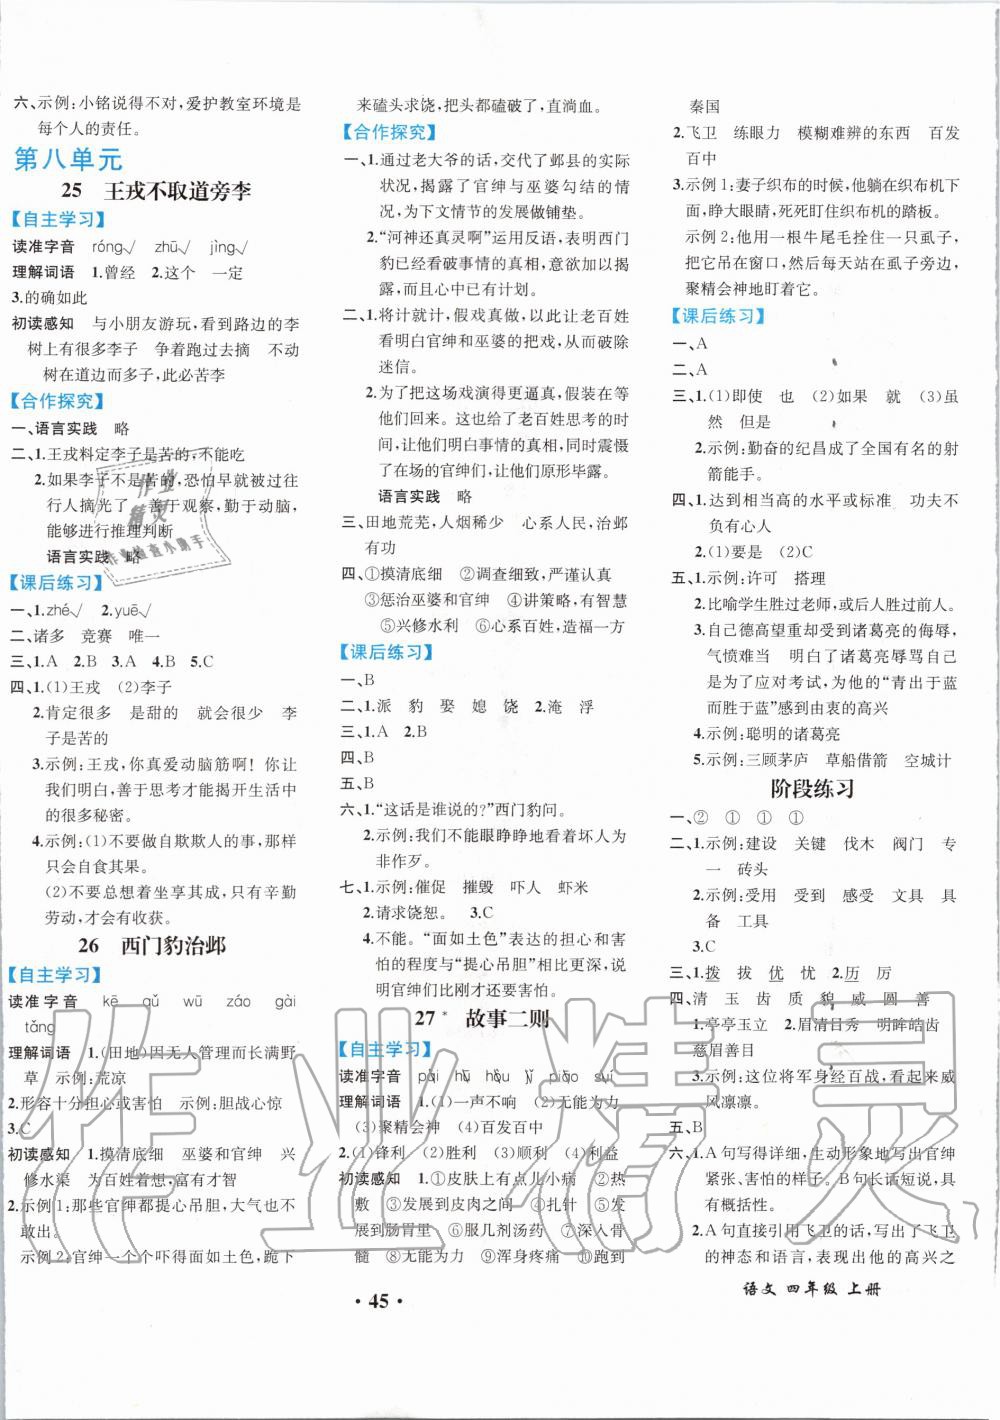 六、示例:小铭说得不对,爱护教室环境是
每个人的责任。
第八单元
25 王戎不取道旁李
【自主学习】
读准字音 róng√ zhū√ jìng√
理解词语 1.曾经 2.这个 一定
3.的确如此
初读感知 与小朋友游玩,看到路边的李
树上有很多李子 争着跑过去摘 不动
树在道边而多子,此必苦李
【合作探究】
一、语言实践 略
二、1.王戎料定李子是苦的,不能吃
2.如果李子不是苦的,恐怕早就被过往
行人摘光了 善于观察,勤于动脑,
能够进行推理判断
语言实践 略
【课后练习】
一、1.zhé√ 2.yuē√
二、诸多 竞赛 唯一
三、1.A 2.B 3.A 4.B 5.C
四、1.(1)王戎 (2)李子
2.肯定很多 是甜的 就会很少 李
子是苦的
3.示例:王戎,你真爱动脑筋啊!你让
我们明白,善于思考才能揭开生活中
的很多秘密。
4.示例:(1)不要做自欺欺人的事,那样
只会自食其果。
(2)不要总想着坐享其成,只有辛勤
劳动,才会有收获。
26 西门豹治邺
【自主学习】
读准字音 kē qǔ wū záo gài
tǎng
理解词语 1.(田地)因无人管理而长满野
草 示例:荒凉
2.形容十分担心或害怕 示例:胆战心惊
3.C
初读感知 1.摸清底细 巫婆和官绅 兴
修水渠 为百姓着想,富有才智
2.示例1:那些官绅都提心吊胆,大气也不
敢出。
示例2:官绅一个个吓得面如土色,跪下
来磕头求饶,把头都磕破了,直淌血。
【合作探究】
一、1.通过老大爷的话,交代了邺县的实际
状况,揭露了官绅与巫婆勾结的情
况,为下文情节的发展做铺垫。
2.“河神还真灵啊”运用反语,表明西门
豹已经看破事情的真相,意欲加以揭
露,而且心中已有计划。
二、1.将计就计,假戏真做,以此让老百姓
看明白官绅和巫婆的把戏,从而破除
迷信。
2.为了把这场戏演得更逼真,假装在等
他们回来。这也给了老百姓思考的时
间,让他们明白事情的真相,同时震慑
了在场的官绅们,让他们原形毕露。
语言实践 略
三、田地荒芜,人烟稀少 心系人民,治邺
有功
四、①摸清底细 ②调查细致,严谨认真
③惩治巫婆和官绅 ④讲策略,有智慧
⑤兴修水利 ⑥心系百姓,造福一方
【课后练习】
一、B
二、1.派 豹 娶 媳 饶 2.淹 浮
三、1.A 2.B
四、B
五、B
六、1.“这话是谁说的?”西门豹问。
2.示例:我们不能眼睁睁地看着坏人为
非作歹。
七、1.示例:催促 摧毁 吓人 虾米
2.请求饶恕。 3.C
4.不能。“面如土色”表达的担心和害怕
的程度与“提心吊胆”相比更深,说
明官绅们比刚才还要害怕。
27* 故事二则
【自主学习】
读准字音 pái hū hóu jǐ piǎo suǐ
理解词语 1.(1)一声不响 (2)无能为力
(3)聚精会神 (4)百发百中
2.(1)锋利 (2)胜利 (3)顺利 (4)利益
初读感知 ①皮肤上有点儿小病 ②热
敷 ③发展到皮肉之间 ④扎针 ⑤发
展到肠胃里 ⑥服几剂汤药 ⑦深入骨
髓 ⑧无能为力 ⑨浑身疼痛 ⑩跑到
秦国
2.飞卫 练眼力 模糊难辨的东西 百发
百中
3.示例1:妻子织布的时候,他躺在织布机下
面,睁大眼睛,死死盯住织布机的踏板。
示例2:他用一根牛尾毛拴住一只虱子,
把它吊在窗口,然后每天站在虱子旁边,
聚精会神地盯着它。
【课后练习】
一、A
二、A
三、1.(1)即使 也 (2)如果 就 (3)虽
然 但是
2.示例:勤奋的纪昌成了全国有名的射
箭能手。
四、1.达到相当高的水平或标准 功夫不
负有心人
2.(1)要是 (2)C
五、1.示例:许可 搭理
2.比喻学生胜过老师,或后人胜过前人。
3.自己德高望重却受到诸葛亮的侮辱,
气愤难当 明白了诸葛亮辱骂自己
是为了应对考试,为他的“青出于蓝
而胜于蓝”感到由衷的高兴
4.示例:聪明的诸葛亮
5.示例:三顾茅庐 草船借箭 空城计
阶段练习
一、② ① ① ①
二、1.示例:建设 关键 伐木 阀门 专
一 砖头
2.示例:受用 受到 感受 文具 具
备 工具
3.C
三、1.拨 拔 优 忧 2.历 厉
四、清 玉 齿 质 貌 威 圆 善
1.亭亭玉立 2.眉清目秀 明眸皓齿
慈眉善目
3.示例:这位将军身经百战,看起来威
风凛凛。
五、B
六、1.A句写得详细,生动形象地写出官绅
紧张、害怕的样子。B句长话短说,具
有概括性。
2.A句直接引用飞卫的话,写出了飞卫
的神态和语言,表现出他的高兴之
· 45 ·
语文 四年级 上册
作业精灵
作业检查小助手
作业精灵